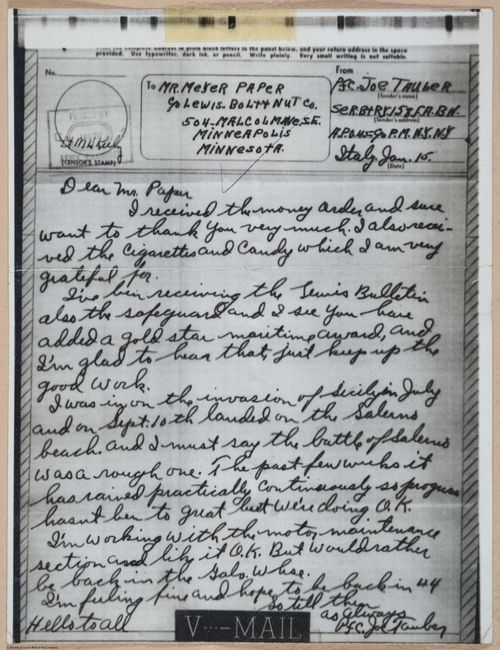 Print the complete address in plain block letters in the panel below, and your return address in the space
provided. Use typewriter, dark ink, or pencil. Write plainly. Very small writing is not suitable.
No.
(CENSOR'S STAMP)
To MR. MEYER PAPER
℅ LEWIS-BOLT & NUT CO.
504-MALCOLM AVE S.E.
MINNEAPOLIS
MINNESOTA.
From
PFC. JOE TAUBER
(Sender's name)
SER. BTRY. 158 F.A. BN.
(Sender's address)
A.P.O. #45 ℅ P.M. N.Y. NY
Italy, Jan. 15
(Date)
Dear Mr. Paper
I received the money order and sure
want to thank you very much. I also recei-
ved the cigarettes and candy which I am very
grateful for.
I've bin receiving the Lewis Bulletin
also the safeguard and I see you have
added a gold star maritime award, and
I'm glad to hear that, just keep up the
good work.
I was in on the invasion of Sicily in July
and on Sept. 10th landed on the Salerno
beach. and I must say the battle of Salerno
was a rough one. The past few weeks it
has rained practically continuously so progress
hasnt ben to great but we're doing O.K.
I'm working with the motor maintenance
section and like it O.K. But would rather
be back in the Galv. Whse.
I'm feeling fine and hope to be back in 44
So till then
as always
Pfc. Joe Tauber
Hello to all
V···—MAIL